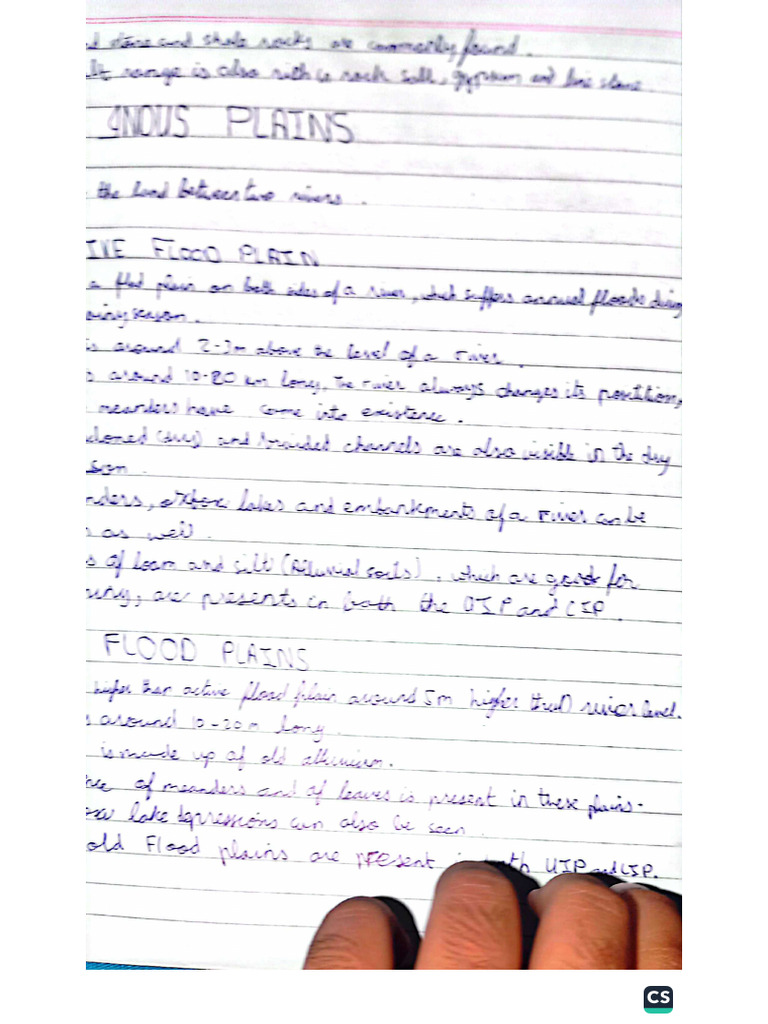 stone and shale rocks are commonly found.
range is also rich in rock salt, gypsum and lime stone.
INDUS PLAINS
the land between two rivers.
IVE FLOOD PLAIN
a flat plain on both sides of a river, which suffers annual floods during
season.
around 2-3m above the level of a river.
around 10-20 km long, The river always changes its
meanders have come into existence.
(dry) and braided channels are also visible in the dry
son.
nders, oxbow lakes and embankments of a river can be
as well.
s of loam and silt (Alluvial soils), which are good for
are presents in both the UIP and LIP.
FLOOD PLAINS
higher than active flood plain around 5m higher than river level.
around 10-20m long.
is made up of old alluvium.
of meanders and of leaves is present in these plains.
lake depressions can also be seen.
old Flood plains are present UIP and LIP.
CS